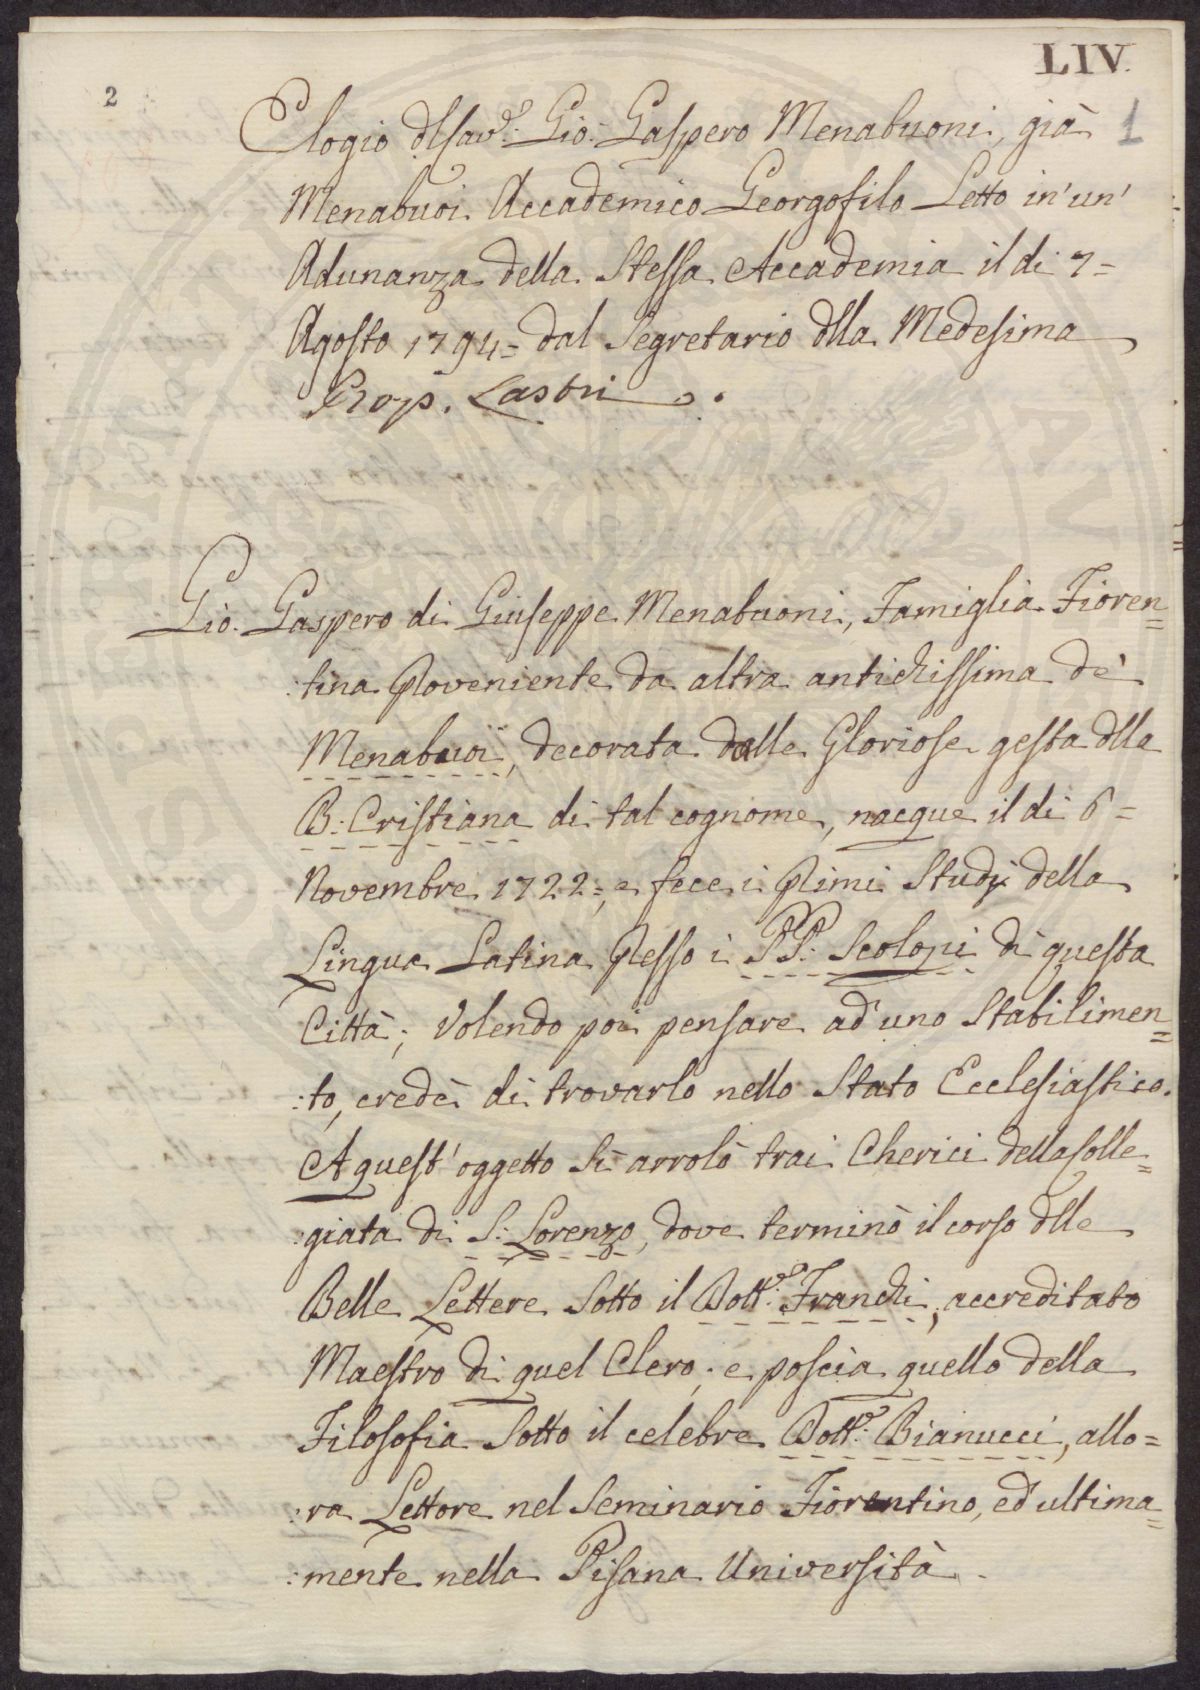 LIV.
2
1
Elogio dl Sav.e: Gio: Gaspero Menabuoni, già
Menabuoi Accademico Georgofilo Letto in' un'
Adunanza della Stessa Accademia il di 7=
Agosto 1794= dal Segretario dlla Medesima
Prop. Lastri.
Gio. Gaspero di Giuseppe Menabuoni, Famiglia Fioren=
:tina Proveniente da altra antichissima de'
Menabuoi, decorata dalle Gloriose gesta dlla
B: Cristiana di tal cognome, nacque il di 6=
Novembre 1722=, e fece i Primi Studj della
Lingua Latina Presso i PP: Scolopi di questa
Città; Volendo poi pensare ad' uno Stabilimen=
:to, credè di trovarlo nello Stato Ecclesiastico.
A quest' oggetto Si arrolò trai Cherici della Colle=
:giata di S: Lorenzo, dove terminò il corso dlle
Belle Lettere Sotto il Dott.e: Franchi, accreditato
Maestro di quel Clero; e poscia quello della
Filosofia Sotto il celebre Dott.e: Bianucci, allo=
:ra Lettore nel Seminario Fiorentino, ed' ultima=
:mente nella Pisana Università.